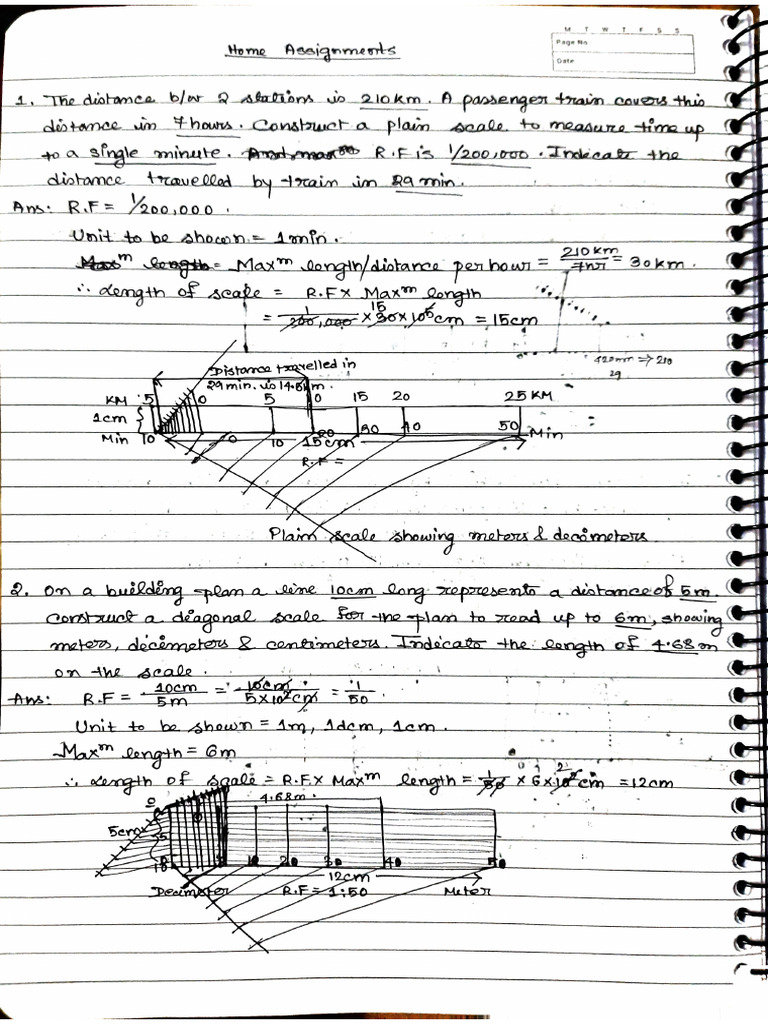 M T W T F S S
Page No.
Date
Home Assignments
1. The distance b/w 2 stations is 210km. A passenger train covers this
distance in 7 hours. Construct a plain scale to measure time up
to a single minute. R.F is 1/200,000. Indicate the
distance travelled by train in 29 min.
Ans: R.F = 1/200,000.
Unit to be shown = 1 min.
Maxm length = Maxm length/distance per hour = 210 km / 7hr = 30 km.
∴ Length of scale = R.F x Maxm length
= 1/200,000 x 30 x 10^5 cm = 15cm
15
420mm ⇒ 210
29
Distance travelled in
29 min. is 14.5km.
KM 5 0 5 10 15 20 25 KM
1cm
Min 10 0 10 20 30 40 50 Min
15cm
R.F =
Plain scale showing meters & decimeters
2. On a building plan a line 10cm long represents a distance of 5m.
construct a diagonal scale for the plan to read up to 6m, showing
meters, decimeters & centimeters. Indicate the length of 4.68m
on the scale.
Ans: R.F = 10cm / 5m = 10cm / 5x10^2 cm = 1 / 50.
Unit to be shown = 1m, 1dcm, 1cm.
Maxm length = 6m
∴ Length of scale = R.F x Maxm length = 1/50 x 6 x 10^2 cm = 12cm
2
4.68m.
0
5cm
5
10 10 20 30 40 50
12cm
Decimeter R.F = 1:50 Meter